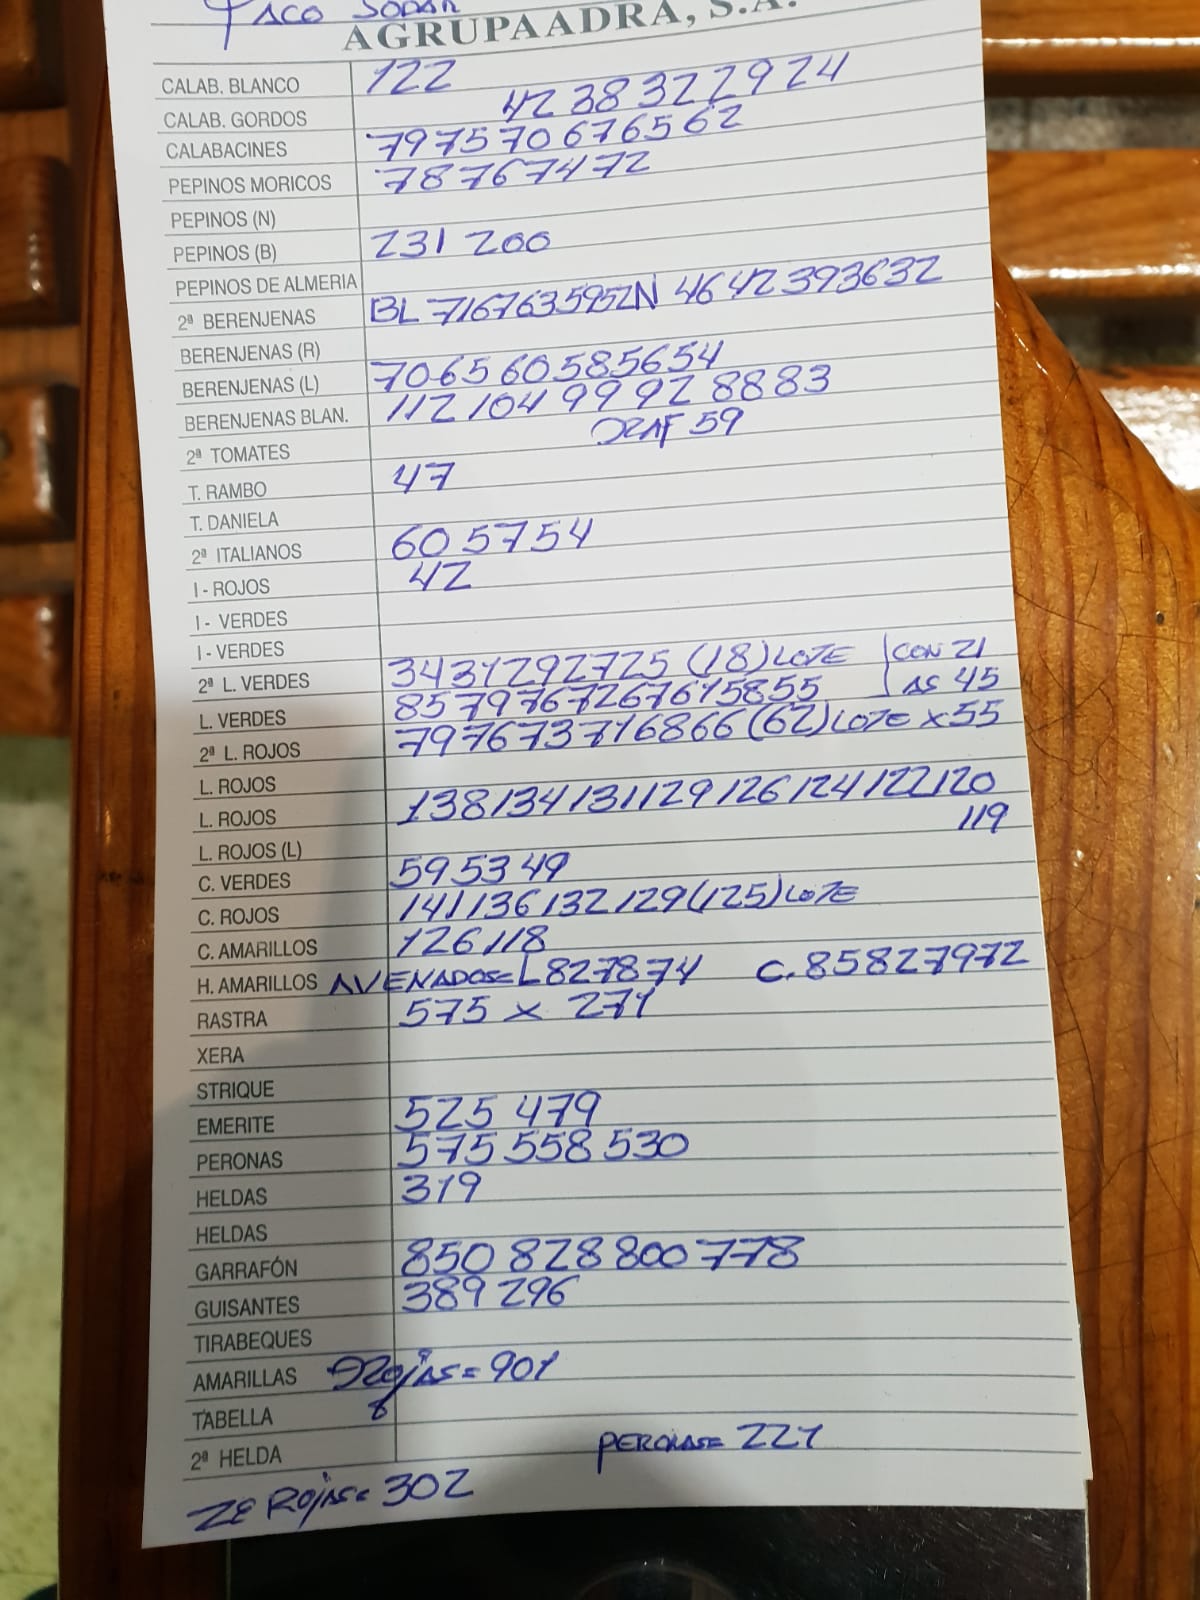 PACO JODAR
AGRUPAADRA, S.A.
CALAB. BLANCO 122
CALAB. GORDOS 42 38 32 27 29 24
CALABACINES 79 75 70 67 65 62
PEPINOS MORICOS 78 76 74 72
PEPINOS (N)
PEPINOS (B) 231 200
PEPINOS DE ALMERIA
2ª BERENJENAS BL 71 67 63 59 52 N 46 42 39 36 32
BERENJENAS (R)
BERENJENAS (L) 70 65 60 58 56 54
BERENJENAS BLAN. 112 104 99 92 88 83
2ª TOMATES 59
T. RAMBO 47
T. DANIELA
2ª ITALIANOS 60 57 54
I - ROJOS 42
I - VERDES
I - VERDES
2ª L. VERDES 34 31 29 27 25 (18) LOTE CON 21
L. VERDES 85 79 76 72 67 61 58 55 AS 45
2ª L. ROJOS 79 76 73 71 68 66 (62) LOTE x 55
L. ROJOS
L. ROJOS 138 134 131 129 126 124 122 120
119
L. ROJOS (L)
C. VERDES 59 53 49
C. ROJOS 141 136 132 129 (125) LOTE
C. AMARILLOS 126 118
H. AMARILLOS AVENADOS= L 82 78 74 C. 85 82 79 72
RASTRA 575 x 271
XERA
STRIQUE
EMERITE 525 479
PERONAS 575 558 530
HELDAS 319
HELDAS
GARRAFÓN 850 828 800 778
GUISANTES 389 296
TIRABEQUES
AMARILLAS ROJAS= 901
TABELLA 8
2ª HELDA PERONAS= 221
ROJAS= 302